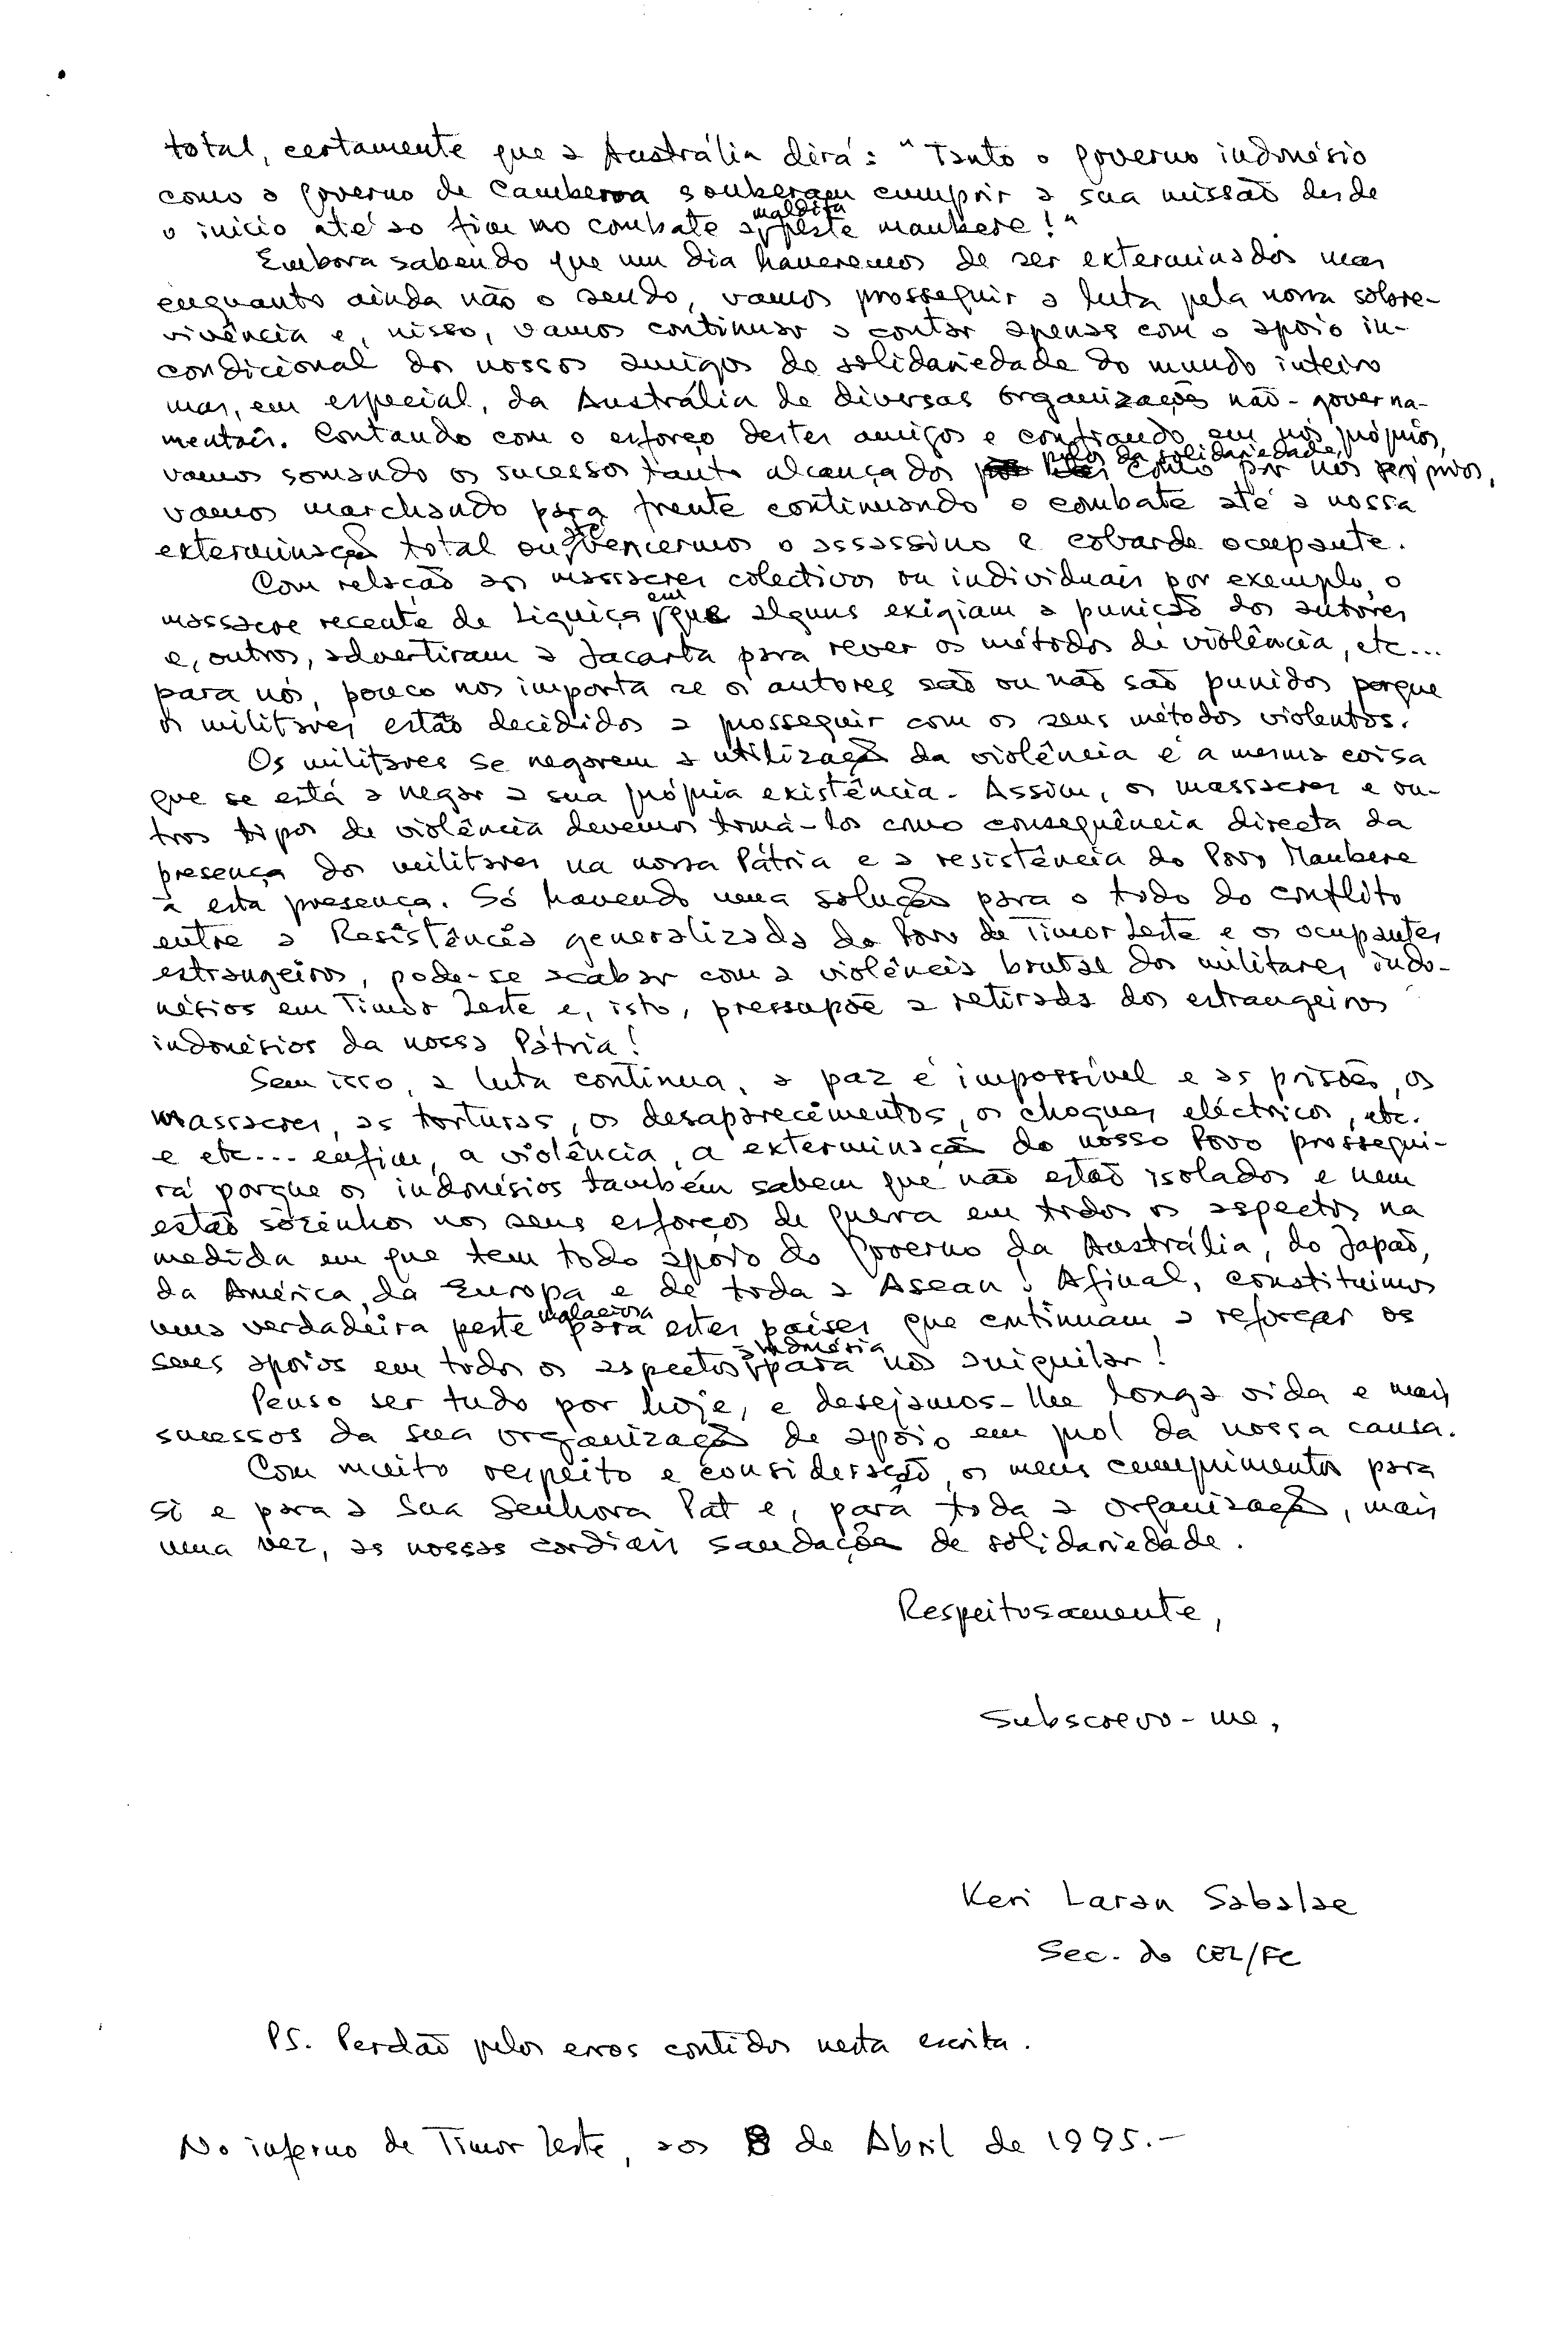 total, certamente que a Austrália dirá: "Tanto o governo indonésio
como o governo de Camberra souberam cumprir a sua missão desde
o inicio até ao fim no combate a maldita peste maubere!"
Embora sabendo que um dia haveremos de ser exterminados mas
enquanto ainda não o sendo, vamos prosseguir a luta pela nossa sobre-
vivência e, nisso, vamos continuar a contar apenas com o apoio in-
condicional dos nossos amigos de solidariedade do mundo inteiro
mas, em especial, da Austrália de diversas organizações não-governa-
mentais. Contando com o esforço destes amigos e confiando em nós próprios,
vamos somando os sucessos tanto alcançados pelos da solidariedade, como por nós próprios,
vamos marchando para frente continuando o combate até a nossa
exterminação total ou vencermos o assassino e cobarde ocupante.
Com relação aos massacres colectivos ou individuais por exemplo, o
massacre recente de Liquiça em que alguns exigiam a punição dos autores
e, outros, advertiram a Jacarta para rever os métodos de violência, etc...
para nós, pouco nos importa se os autores são ou não são punidos porque
os militares estão decididos a prosseguir com os seus métodos violentos.
Os militares se negarem a utilização da violência é a mesma coisa
que se está a negar a sua própria existência. Assim, os massacres e ou-
tros tipos de violência devemos tomá-los como consequência directa da
presença dos militares na nossa Pátria e a resistência do Povo Maubere
à esta presença. Só havendo uma solução para o todo do conflito
entre a Resistência generalizada do Povo de Timor Leste e os ocupantes
estrangeiros, pode-se acabar com a violência brutal dos militares indo-
nésios em Timor Leste e, isto, pressupõe a retirada dos estrangeiros
indonésios da nossa Pátria!
Sem isso, a luta continua, a paz é impossível e as prisões, os
massacres, as torturas, os desaparecimentos, os choques eléctricos, etc.
e etc... enfim, a violência, a exterminação do nosso Povo prossegui-
rá porque os indonésios também sabem que não estão isolados e nem
estão sòzinhos nos seus esforços de guerra em todos os aspectos na
medida em que tem todo apoio do Governo da Austrália, do Japão,
da América, da Europa e de toda a Asean! Afinal, constituimos
uma verdadeira peste malaciosa para estes países que continuam a reforçar os
seus apoios em todos os aspectos a Indonésia para nos aniquilar!
Penso ser tudo por hoje, e desejamos-lhe longa vida e mais
sucessos da sua organização de apoio em prol da nossa causa.
Com muito respeito e consideração, os meus cumprimentos para
si e para a Sua Senhora Pat e, para toda a organização, mais
uma vez, as nossas cordiais saudações de solidariedade.
Respeitosamente,
Subscrevo-me,
Keri Laran Sabalae
Sec. do CEL/FC
PS. Perdão pelos erros contidos nesta escrita.
No inferno de Timor Leste, aos 8 de Abril de 1995.-